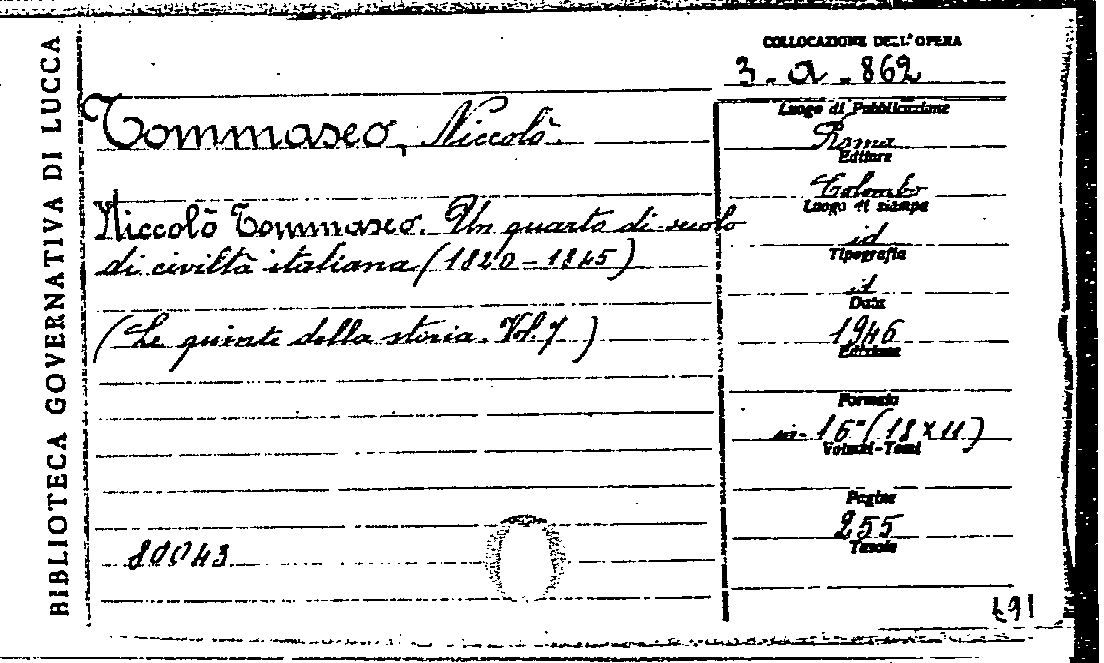 BIBLIOTECA GOVERNATIVA DI LUCCA
COLLOCAZIONE DELL'OPERA
3-a-862
Tommaseo, Niccolò.
Niccolò Tommaseo. Un quarto di secolo
di civiltà italiana (1820-1845)
(Le quinte della storia. Vol. 7)
80043
Luogo di Pubblicazione
Roma
Editore
Colombo
Luogo di stampa
id
Tipografia
id
Data
1946
Edizione
Formato
in-16° (18x11)
Volumi-Tomi
Pagine
255
Tavole